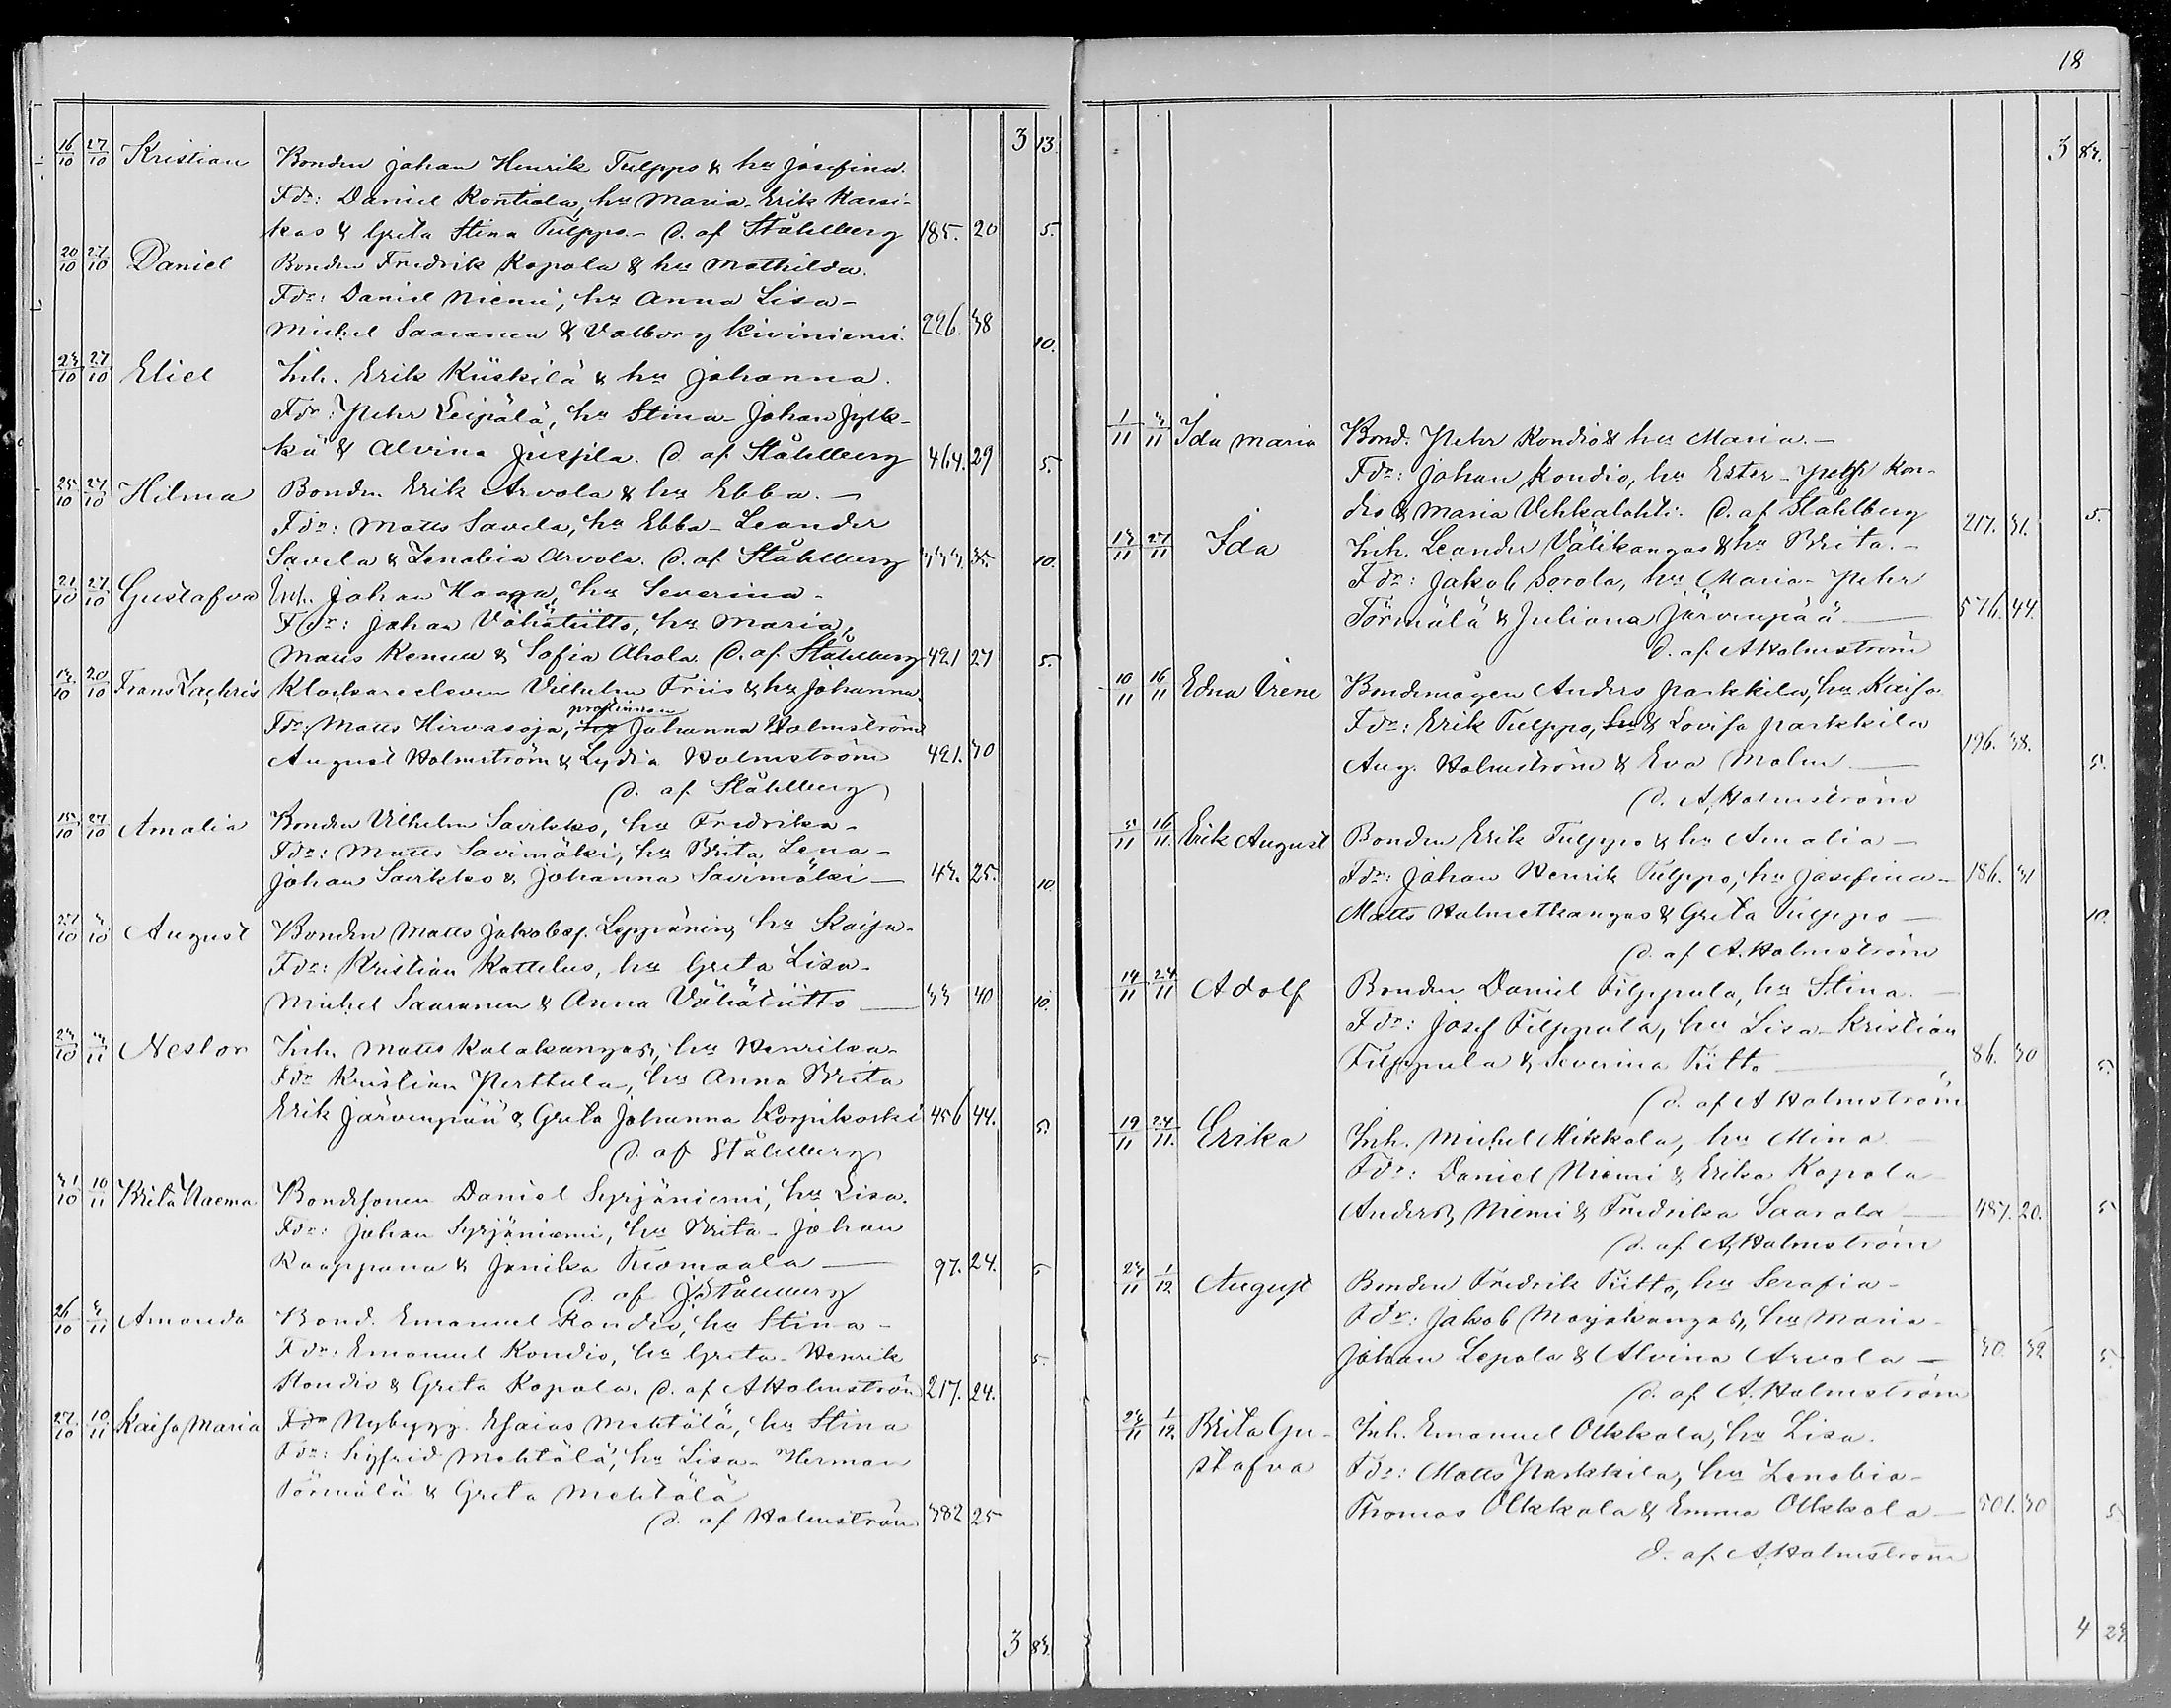 3 13.
16/10 27/10 Kristian Bonden Johan Henrik Tulppo & hu Josefina.
Fdr: Daniel Kontiola, hu Maria. Erik Karsi-
kas & Greta Stina Tulppo. - D. af Ståhlberg 185. 20 5.
20/10 27/10 Daniel Bonden Fredrik Kopola & hu Mathilda.
Fdr: Daniel Niemi, hu Anna Lisa -
Michel Saaranen & Valborg Kiviniemi. 226. 38 10.
23/10 27/10 Eliel Inh. Erik Küskilä & hu Johanna.
Fdr: Pehr Leipälä, hu Stina - Johan Jylk-
kä & Alvina D. af Ståhlberg 464. 29 5.
25/10 27/10 Hilma Bonden Erik Arvola & hu Ebba. -
Fdr: Matts Savela, hu Ebba - Leander
Savela & Zenobia Arvola. D. af Ståhlberg 333. 35. 10.
21/10 27/10 Gustafva Inh. Johan Haaga, hu Severina -
Fdr: Johan Vähätiitto, hu Maria,
Matts Kemu & Sofia Ahola. D. af Ståhlberg 421 27 5.
13/10 20/10 Frans Zachris Klockareeleven Vilhelm Friis & hu Johanna.
prostinnan
Fdr: Matts Hirvasoja, Johanna Holmström
August Holmström & Lydia Holmström 421. 30
D. af Ståhlberg
15/10 27/10 Amalia Bonden Vilhelm Savikko, hu Fredrika -
Fdr: Matts Savimäki, hu Brita Lena -
Johan Savikko & Johanna Savimäki - 43. 25. 10
27/10 3/10 August Bonden Matts Jakobsp. Leppänen, hu Kaisa -
Fdr: Kristian Kattelus, hu Greta Lisa -
Michel Saaranen & Anna Vähätiitto - 33 40 10.
23/10 3/11 Nestor Inh. Matts Kalakangas, hu Henrika -
Fdr Kristian Perttula, hu Anna Brita
Erik Järvenpää & Greta Johanna Korpikoski 456 44. 5.
D. af Ståhlberg
31/10 10/11 Brita Naema Bondesonen Daniel Syrjäniemi, hu Lisa.
Fdr: Johan Syrjäniemi, hu Brita - Johan
Kauppana & Jenika Tuomaala - 97. 24. 5
D. af J. Ståhlberg
26/10 3/11 Amanda Bond. Emanuel Kondio, hu Stina -
Fdr: Emanuel Kondio, hu Greta - Henrik 5.
Kondio & Greta Kopola. D. af A Holmström 217. 24.
27/10 10/11 Kaisa Maria Fdr Nybygg. Esaias Mehtälä, hu Stina
Fdr: Sigfrid Mehtälä, hu Lisa - Herman
Törmälä & Greta Mehtälä
D. af Holmström 382 25
3 83.
18
3 83.
1/11 3/11 Ida Maria Bond. Pehr Kondio & hu Maria. -
Fdr: Johan Kondio, hu Ester - Kon-
dio & Maria Vehkalahti. D. af Stahlberg 217. 31. 5.
13/11 27/11 Ida Inh. Leander Välikangas & hu Brita. -
Fdr: Jakob Sorola, hu Maria - Pehr
Törmälä & Juliana Järvenpää - 576. 44.
D. af A Holmström
10/11 16/11 Edna Irene Bondemågen Anders Parkkila, hu Kaisa
Fdr: Erik Tulppo, hu & Lovisa Parkkila
Aug. Holmström & Eva Malm - 196. 38. 5.
D. A. Holmström
5/11 16/11. Erik August Bonden Erik Tulppo & hu Amalia -
Fdr: Johan Henrik Tulppo, hu Josefina - 186. 31
Matts Halmetkangas & Greta Tulppo - 10.
D. af A. Holmström
14/11 24/11 Adolf Bonden Daniel Filppula, hu Stina. -
Fdr: Josef Filppula, hu Lisa - Kristian
Filppula & Severina Tiitto - 86. 30 5.
D. af A Holmström
19/11 24/11. Erika Inh. Michel Mikkola, hu Mina -
Fdr: Daniel Niemi & Erika Kopola
Anders Niemi & Fredrika Saarela - 487. 20. 5
D. af A, Holmström
23/11 1/12 August Bonden Fredrik Tiitto, hu Serafia -
Fdr: Jakob Mojakangas, hu Maria -
Johan Lepola & Alvina Arvola - 30. 32 5.
D. af A. Holmström
23/11 1/12. Brita Gu- Inh. Emanuel Olkkola, hu Lisa.
stafva Fdr: Matts Parkkila, hu Zenobia -
Thomas Olkkola & Emma Olkkola - 501. 30 5
D. af A. Holmström
4 23